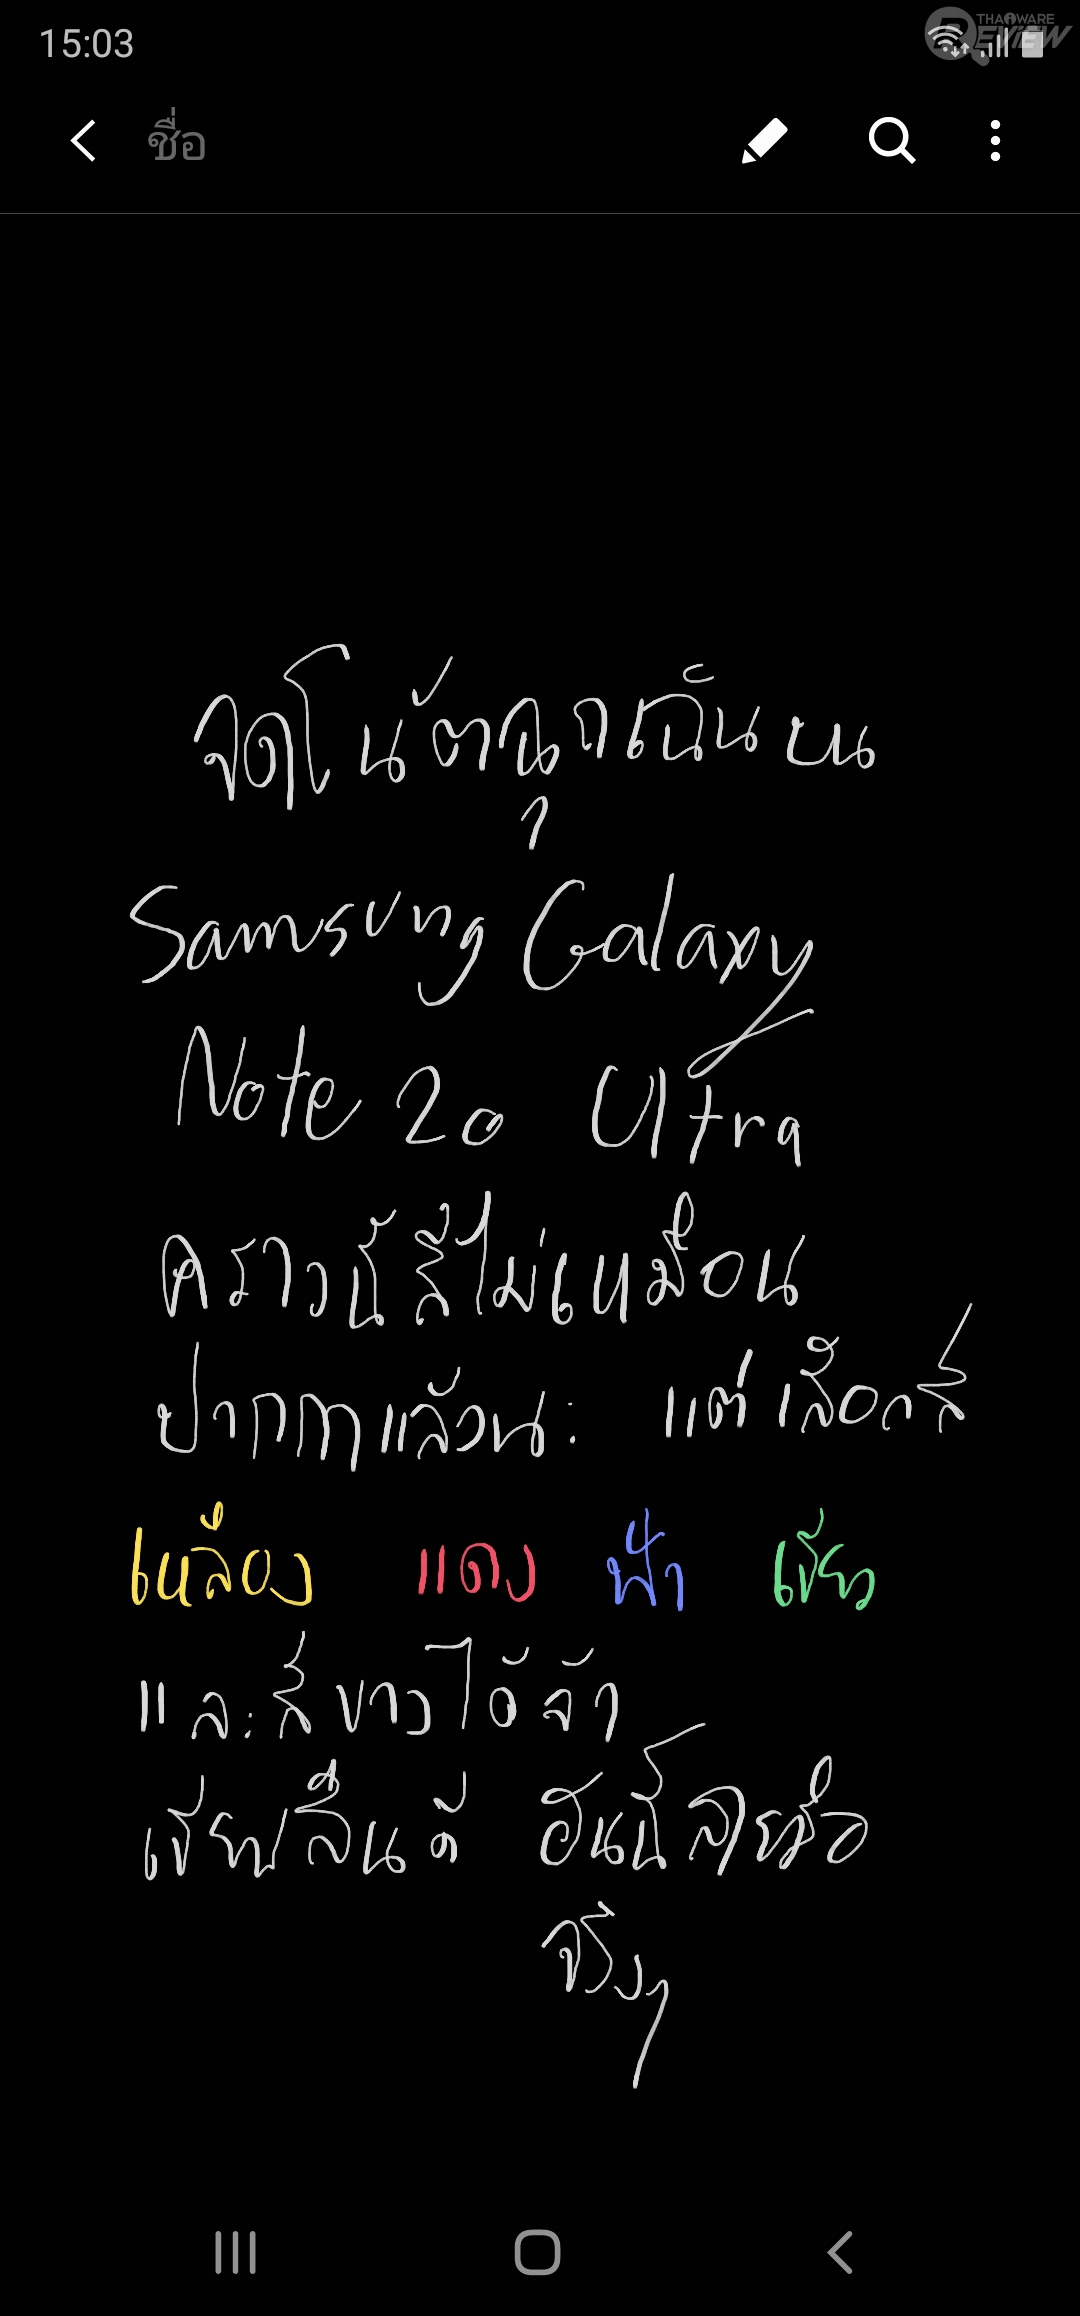 15:03
THAIWARE
REVIEW
ชื่อ
จดโน้ตฉุกเฉินบน
Samsung Galaxy
Note 20 Ultra
คราวนี้สีไม่เหมือน
ปากกาแล้วนะ แต่เลือกสี
เหลือง แดง ฟ้า เขียว
และสีขาวได้จ้า
เขียนลื่นดี อันนี้ลายมือ
จริงๆ